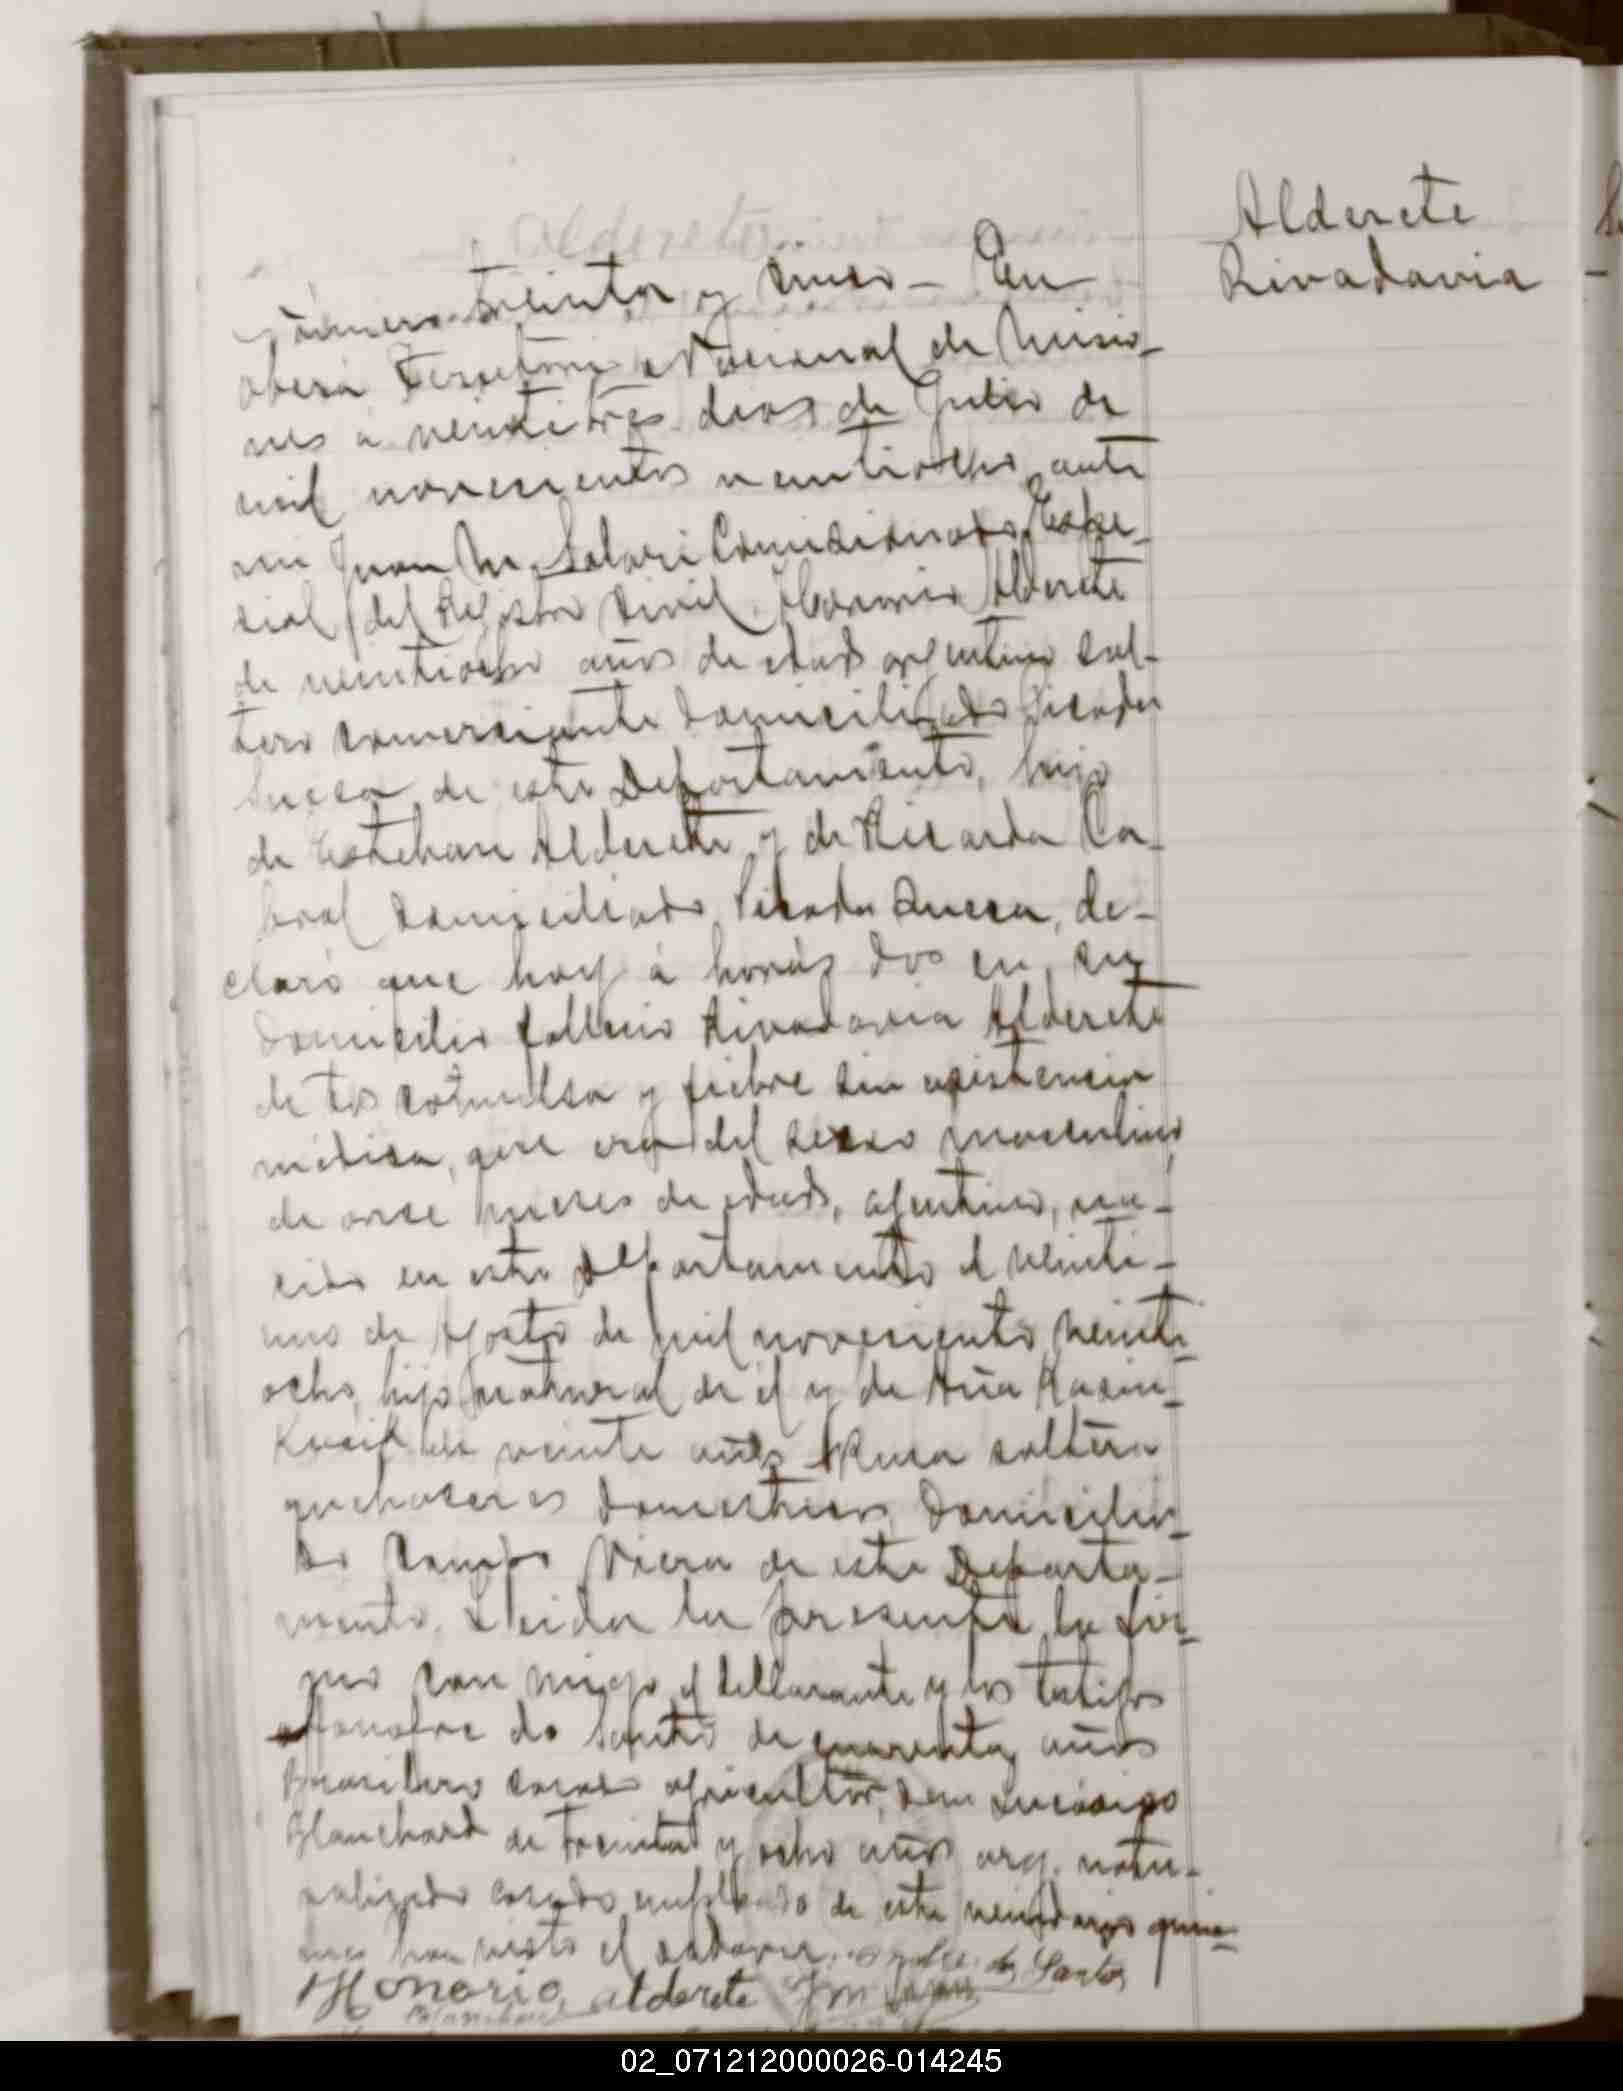 Alderete
Rivadavia
Número treinta y cinco – En
Oberá Territorio Nacional de Misio-
nes a veintitres dias de Julio de
mil novecientos veintiocho ante
mi Juan M. Solari Comisionado Espe-
cial del Registro Civil, Honorio Alderete
de veintiocho años de edad argentino sol-
tero comerciante domiciliado Picada
Sueca de este Departamento, hijo
de Esteban Alderete y de Ricarda Ca-
bral domiciliado Picada Sueca, de-
claró que hoy á horás dos en su
domicilio fallecio Rivadavia Alderete
de tos convulsa y fiebre sin asistencia
médica, que era del sexso masculino
de onse meses de edad, argentino, na-
cido en este Departamento el veinti-
uno de Agosto de mil novesiento veinti
ocho, hijo natural de él y de Ana
de veinte años Rusa soltera
quehaseres domesticos domicilia-
do Campo Viera de este Departa-
mento. Leida la presente la fir-
mo con migo el declarante y los testigos
Onofre do Santo de cuarenta años
Brasilero casado agricultor, don
Blanchard de treinta y ocho años arg. natu-
ralizado casado empleado de este veindario quie-
nes han visto el cadaver. Onofre dos Santos
Honorio alderete
Blanchard
02_071212000026-014245